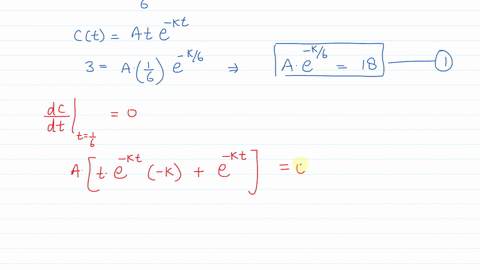 6
C(t) = At e^{-Kt}
3 = A(1/6) e^{-K/6} ⇒ A·e^{-K/6} = 18 — ①
dc/dt |_{t=1/6} = 0
A[t·e^{-Kt}(-K) + e^{-Kt}] = 0